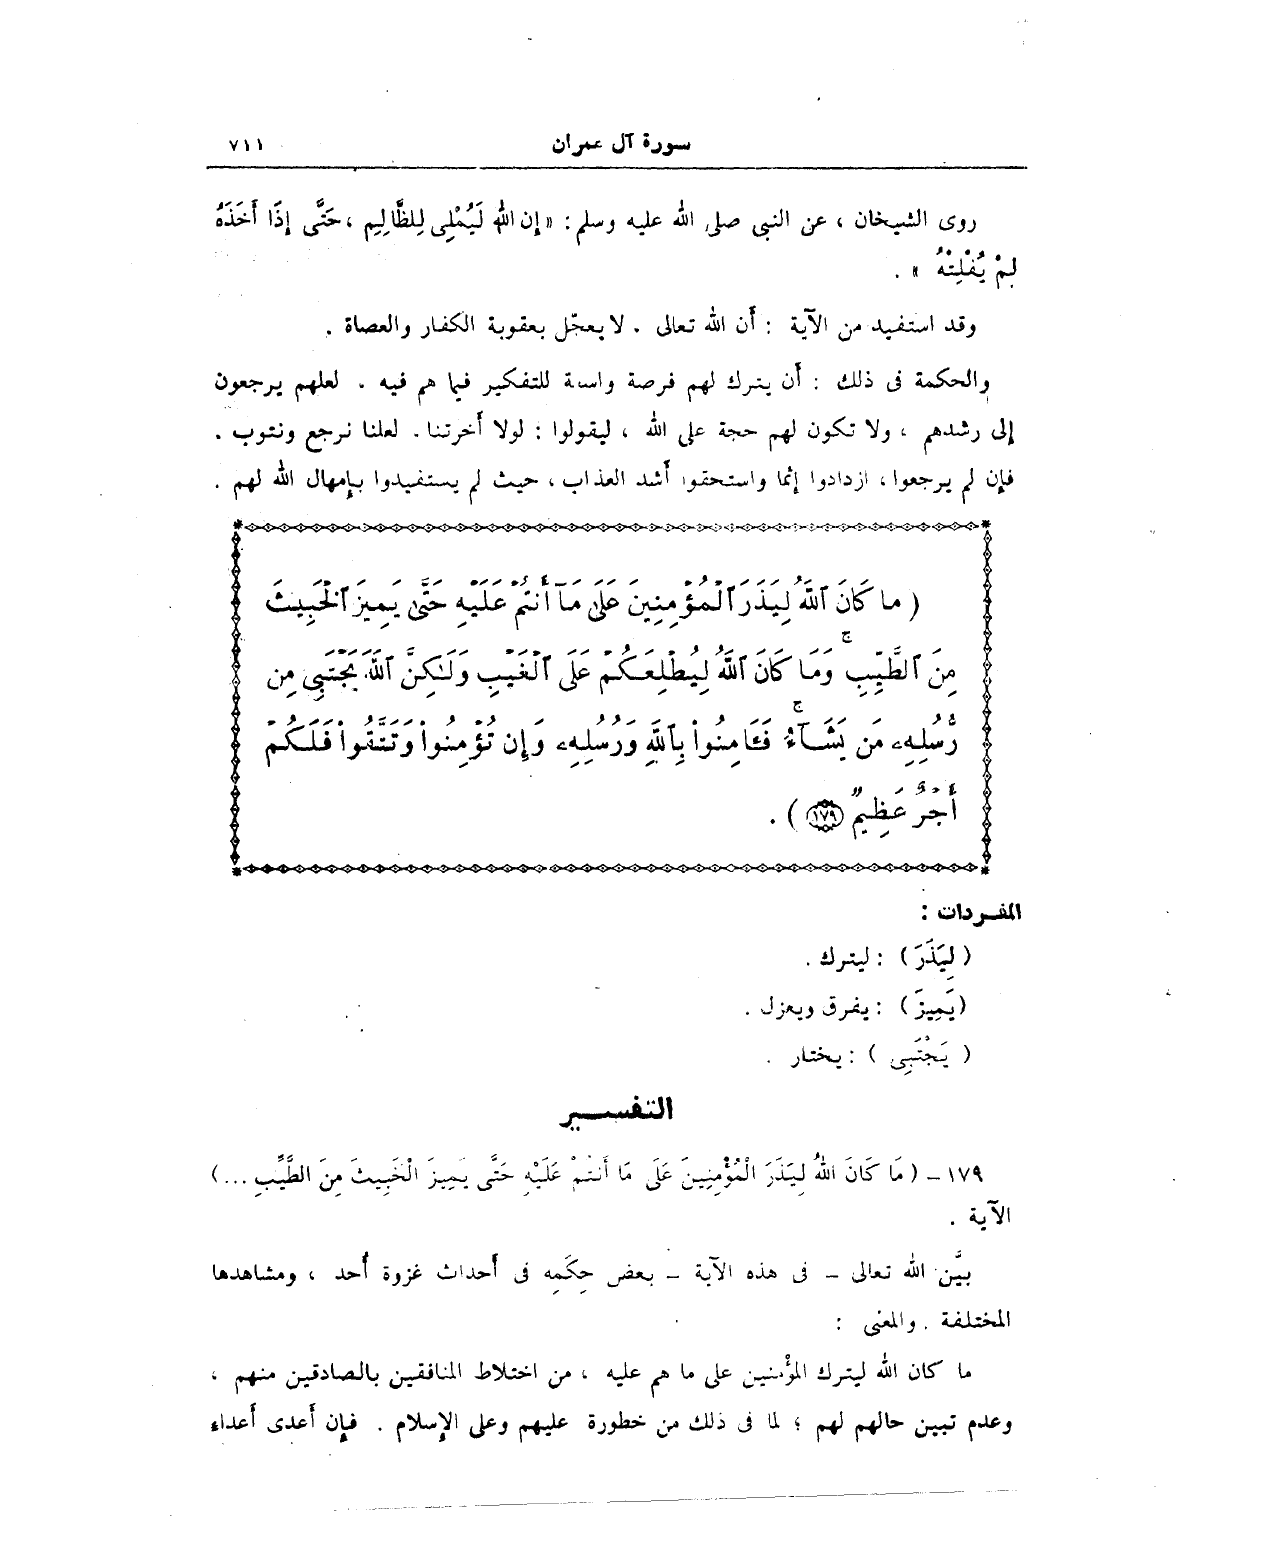 سورة آل عمران ٧١١
روى الشيخان ، عن النبى صلى الله عليه وسلم : « إن اللهَ لَيُمْلِى لِلظَّالِمِ ، حَتَّى إِذَا أَخَذَهُ
لَمْ يُفْلِتْهُ » .
وقد استفيد من الآية : أن الله تعالى . لا يعجّل بعقوبة الكفار والعصاة .
والحكمة فى ذلك : أن يترك لهم فرصة واسعة للتفكير فيما هم فيه . لعلهم يرجعون
إلى رشدهم ، ولا تكون لهم حجة على الله ، ليقولوا : لولا أخرتنا . لعلنا نرجع ونتوب .
فإن لم يرجعوا ، ازدادوا إثما واستحقوا أشد العذاب ، حيث لم يستفيدوا بإمهال الله لهم .
( ما كَانَ ٱللَّهُ لِيَذَرَ ٱلْمُؤْمِنِينَ عَلَىٰ مَآ أَنتُمْ عَلَيْهِ حَتَّىٰ يَمِيزَ ٱلْخَبِيثَ
مِنَ ٱلطَّيِّبِ ۚ وَمَا كَانَ ٱللَّهُ لِيُطْلِعَكُمْ عَلَى ٱلْغَيْبِ وَلَـٰكِنَّ ٱللَّهَ يَجْتَبِى مِن
رُّسُلِهِۦ مَن يَشَآءُ ۚ فَـَٔامِنُوا۟ بِٱللَّهِ وَرُسُلِهِۦ وَإِن تُؤْمِنُوا۟ وَتَتَّقُوا۟ فَلَكُمْ
أَجْرٌ عَظِيمٌ ١٧٩ ) .
المفردات :
( لِيَذَرَ ) : ليترك .
( يَمِيزَ ) : يفرق ويعزل .
( يَجْتَبِى ) : يختار .
التفسير
١٧٩ - ( مَا كَانَ اللهُ لِيَذَرَ الْمُؤْمِنِينَ عَلَى مَا أَنتُمْ عَلَيْهِ حَتَّى يَمِيزَ الْخَبِيثَ مِنَ الطَّيِّبِ ... )
الآية .
بيَّن الله تعالى - فى هذه الآية - بعض حِكَمِه فى أحداث غزوة أُحد ، ومشاهدها
المختلفة . والمعنى :
ما كان الله ليترك المؤمنين على ما هم عليه ، من اختلاط المنافقين بالصادقين منهم ،
وعدم تبين حالهم لهم ؛ لما فى ذلك من خطورة عليهم وعلى الإسلام . فإن أعدى أعداء